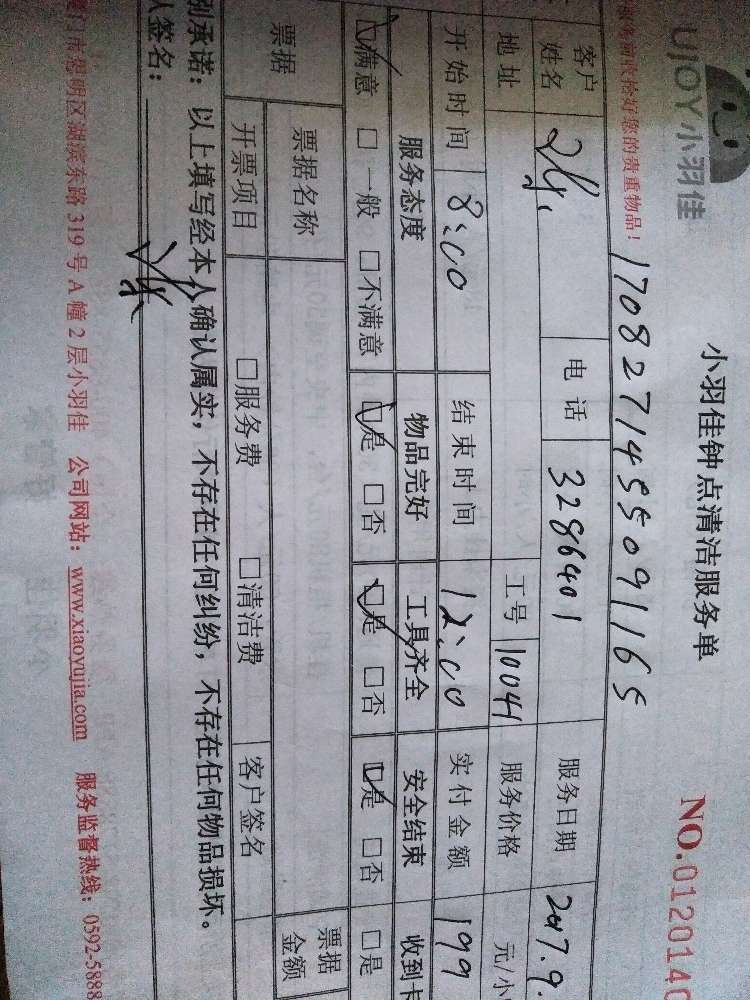 UJOY小羽佳
小羽佳钟点清洁服务单
NO.0120140
服务前收拾好您的贵重物品!
170827145509116S
客户姓名 电话 3286401 服务日期 2017.9.
地址 工号 10041 服务价格 元/小
开始时间 8:00 结束时间 12:00 实付金额 199
服务态度 物品完好 工具齐全 安全结束 收到卡
☑满意 □一般 □不满意 ☑是 □否 ☑是 □否 ☑是 □否 □是
票据 票据名称 票据金额
开票项目 □服务费 □清洁费 客户签名
别承诺:以上填写经本人确认属实,不存在任何纠纷,不存在任何物品损坏。
人签名:
门市思明区湖滨东路319号A幢2层小羽佳 公司网站:www.xiaoyujia.com 服务监督热线:0592-5888